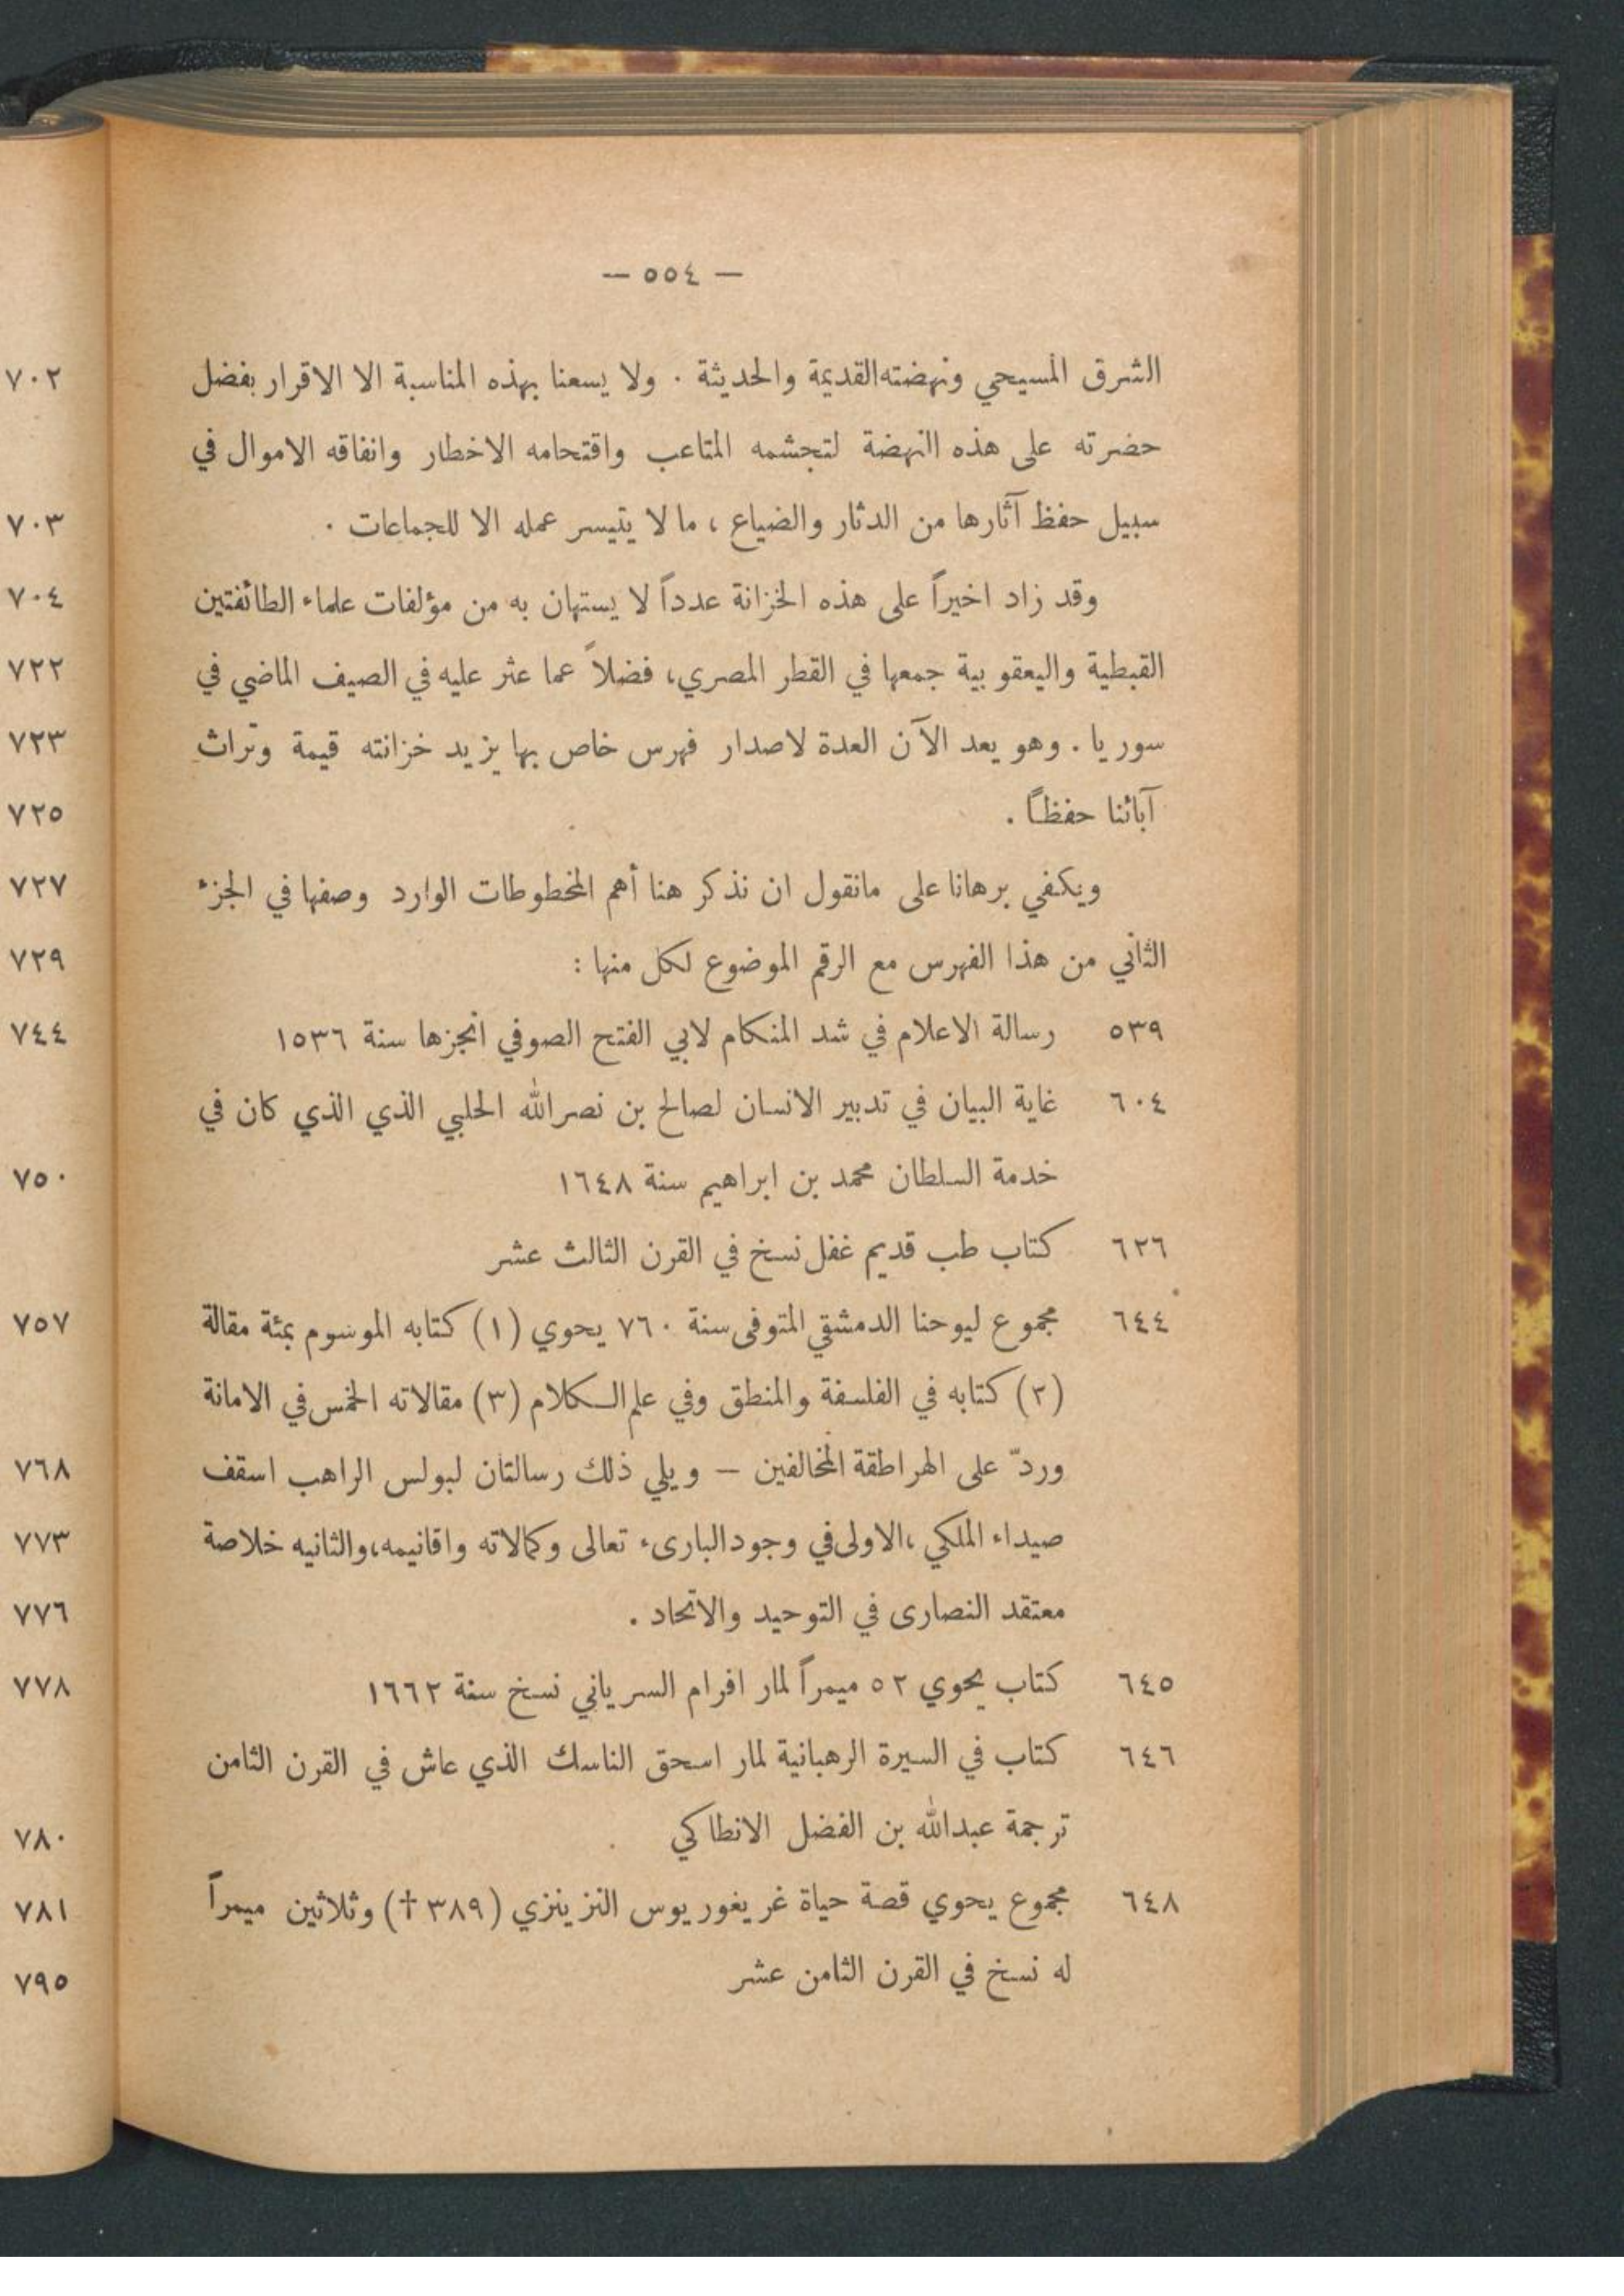 — ٥٥٤ —
الشرق المسيحي ونهضته القديمة والحديثة . ولا يسعنا بهذه المناسبة الا الاقرار بفضل
حضرته على هذه النهضة لتجشمه المتاعب واقتحامه الاخطار وانفاقه الاموال في
سبيل حفظ آثارها من الدثار والضياع ، ما لا يتيسر عمله الا للجماعات .
وقد زاد اخيراً على هذه الخزانة عدداً لا يستهان به من مؤلفات علماء الطائفتين
القبطية واليعقوبية جمعها في القطر المصري، فضلاً عما عثر عليه في الصيف الماضي في
سوريا . وهو يعد الآن العدة لاصدار فهرس خاص بها يزيد خزانته قيمة وتراث
آبائنا حفظاً .
ويكفي برهانا على مانقول ان نذكر هنا أهم المخطوطات الوارد وصفها في الجزء
الثاني من هذا الفهرس مع الرقم الموضوع لكل منها :
٥٣٩ رسالة الاعلام في شد المنكام لابي الفتح الصوفي انجزها سنة ١٥٣٦
٦٠٤ غاية البيان في تدبير الانسان لصالح بن نصرالله الحلبي الذي الذي كان في
خدمة السلطان محمد بن ابراهيم سنة ١٦٤٨
٦٢٦ كتاب طب قديم غفل نسخ في القرن الثالث عشر
٦٤٤ مجموع ليوحنا الدمشقي المتوفى سنة ٧٦٠ يحوي (١) كتابه الموسوم بمئة مقالة
(٢) كتابه في الفلسفة والمنطق وفي علم الكلام (٣) مقالاته الخمس في الامانة
وردّ على الهراطقة المخالفين — ويلي ذلك رسالتان لبولس الراهب اسقف
صيداء الملكي ،الاولى في وجود البارىء تعالى وكمالاته واقانيمه،والثانيه خلاصة
معتقد النصارى في التوحيد والاتحاد .
٦٤٥ كتاب يحوي ٥٢ ميمراً لمار افرام السرياني نسخ سنة ١٦٦٢
٦٤٦ كتاب في السيرة الرهبانية لمار اسحق الناسك الذي عاش في القرن الثامن
ترجمة عبدالله بن الفضل الانطاكي
٦٤٨ مجموع يحوي قصة حياة غريغوريوس النزينزي (٣٨٩ †) وثلاثين ميمراً
له نسخ في القرن الثامن عشر
٧٠٢
٧٠٣
٧٠٤
٧٢٢
٧٢٣
٧٢٥
٧٢٧
٧٢٩
٧٤٤
٧٥٠
٧٥٧
٧٦٨
٧٧٣
٧٧٦
٧٧٨
٧٨٠
٧٨١
٧٩٥